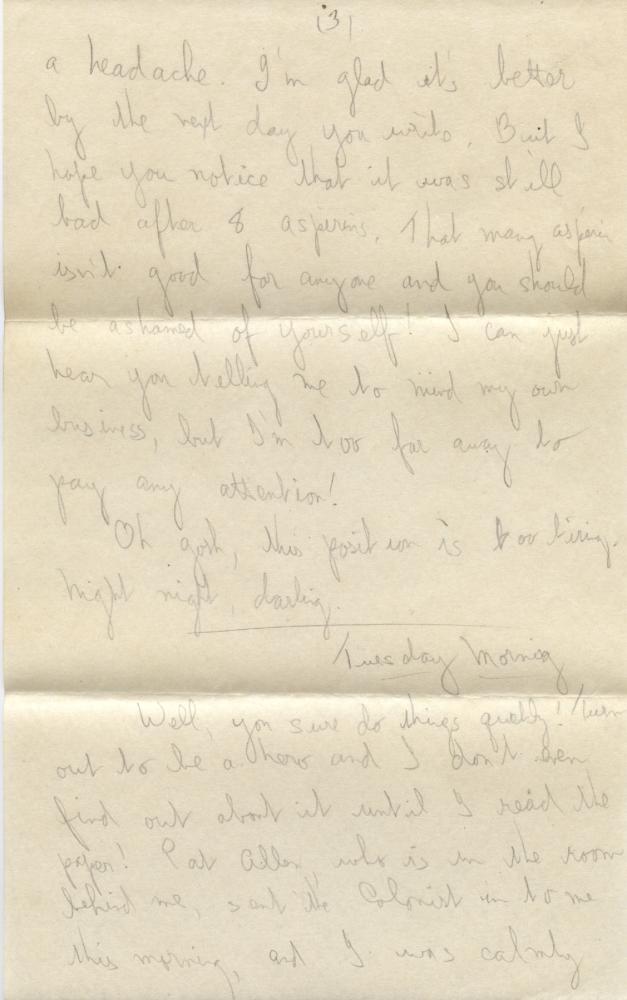 (3)
a headache. I'm glad it's better
by the next day you write. But I
hope you notice that it was still
bad after 8 aspirins. That many aspirin
isn't good for anyone and you should
be ashamed of yourself! I can just
hear you telling me to mind my own
business, but I'm too far away to
pay any attention!
Oh gosh, this position is too tiring.
Night night, darling.
Tuesday Morning
Well, you sure do things quietly! Turn
out to be a hero and I don't even
find out about it until I read the
paper! Pat Allen, who is in the room
behind me, sent the Colonist in to me
this morning, and I was calmly